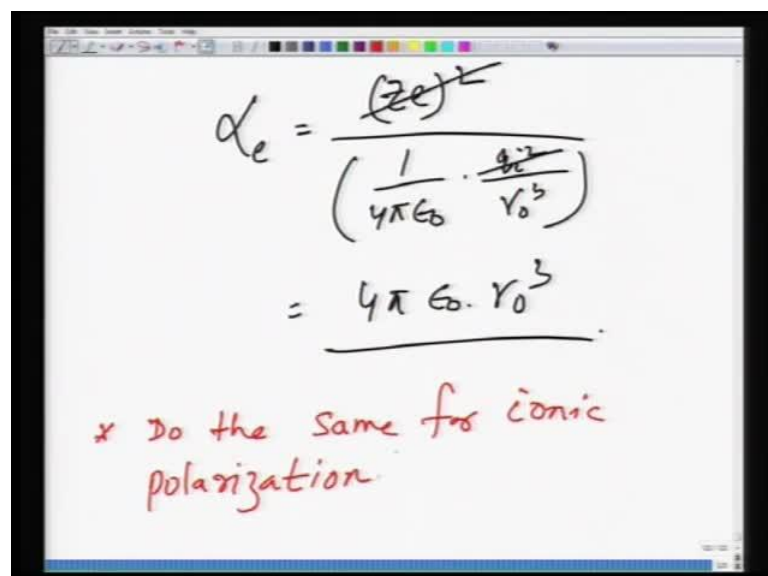 αe = (Ze)² / ( 1/4πε0 · q²/r0³ )
= 4π ε0. r0³
* Do the same for ionic
polarization.